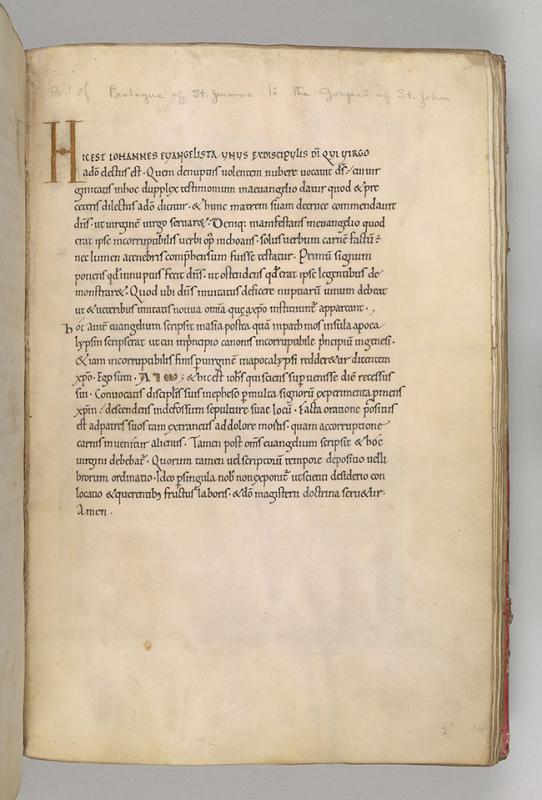 Part of Prologue of St. Jerome to the Gospel of St. John
HIC EST IOHANNES EVANGELISTA VNVS EX DISCIPVLIS DĪ QVI VIRGO
adō electus est. Quem denuptiis volentem nubere vocavit dś. cui vir
ginitatis inhoc dupplex testimonium inaevangelio datur quod & pre
ceteris dilectus adō dicitur. & huic matrem suam decruce commendavit
dnś. ut virginē virgo servar&. Deniq; manifestans inevangelio quod
erat ipse incorruptibilis verbi op̄ inchoans. solus verbum carnē factū ÷
nec lumen atenebris comp̄hensum fuisse testatur. Primū signum
ponens qd innuptiis fecit dnś. ut ostendens qd erat ipse legentibus de
monstrar&. Quod ubi dnś invitatus deficere nuptiarū vinum debeat
ut & veteribus inmutatis nova omīa quę axp̄o instituunt᷒ appareant.
hoc autē evangelium scripsit inasia postea quā inpathmos insula apoca
lypsin scripserat ut cui inp̄ncipio canonis incorruptibile p̄ncipiū ingenesi.
& iam incorruptibilis finis p̄ virginē inapocalypsi redder&ur dicentem
xp̄o. Ego sum. A & ω; & hic est iohs̄ qui sciens supervenisse diē recessus
sui. Convocatis discipłis suis inepheso p̄ multa signorū experimenta p̄mens
xp̄m. descendens indefossum sepulture suae locū. Facta oratione p̄ositus
est adpatres suos tam extraneus addolore mortis. quam accorruptione
carnis invenitur alienus. Tamen post om̄s evangelium scripsit & hoc
virgini debebat᷒. Quorum tamen vel scriptorū tempore depositio vel li
brorum ordinatio. Ideo p̄ singula nob̄ non exponit᷒ ut scienti desiderio con
locatio & querentib; fructus laboris. & dō magisterii doctrina serv&ur.
Amen.